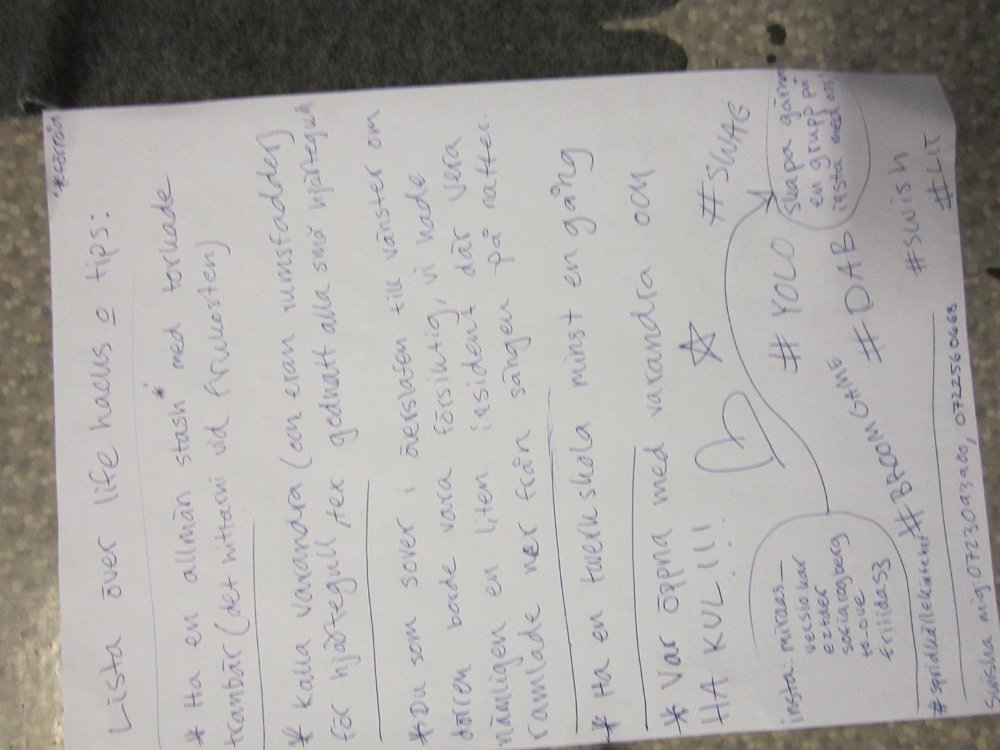 *förråd
Lista över life hacks o tips:
* Ha en allmän stash* med torkade
tranbär (det hittar ni vid frukosten)
* Kalla varandra (och eran rumsfadder)
för hjärtegull, tex godnatt alla små hjärtegull
* Du som sover i överslafen till vänster om
dörren borde vara försiktig, vi hade
nämligen en liten insident där Vera
ramlade ner från sängen på natten.
* Ha en twerkskola minst en gång
* Var öppna med varandra och
HA KUL!!!!
#SWAG
# YOLO
skapa gärna
en grupp på
insta med oss
# DAB
#swish
#LIT
#BROOMGAME
insta: miraas_
eztder
friidas3
swisha mig